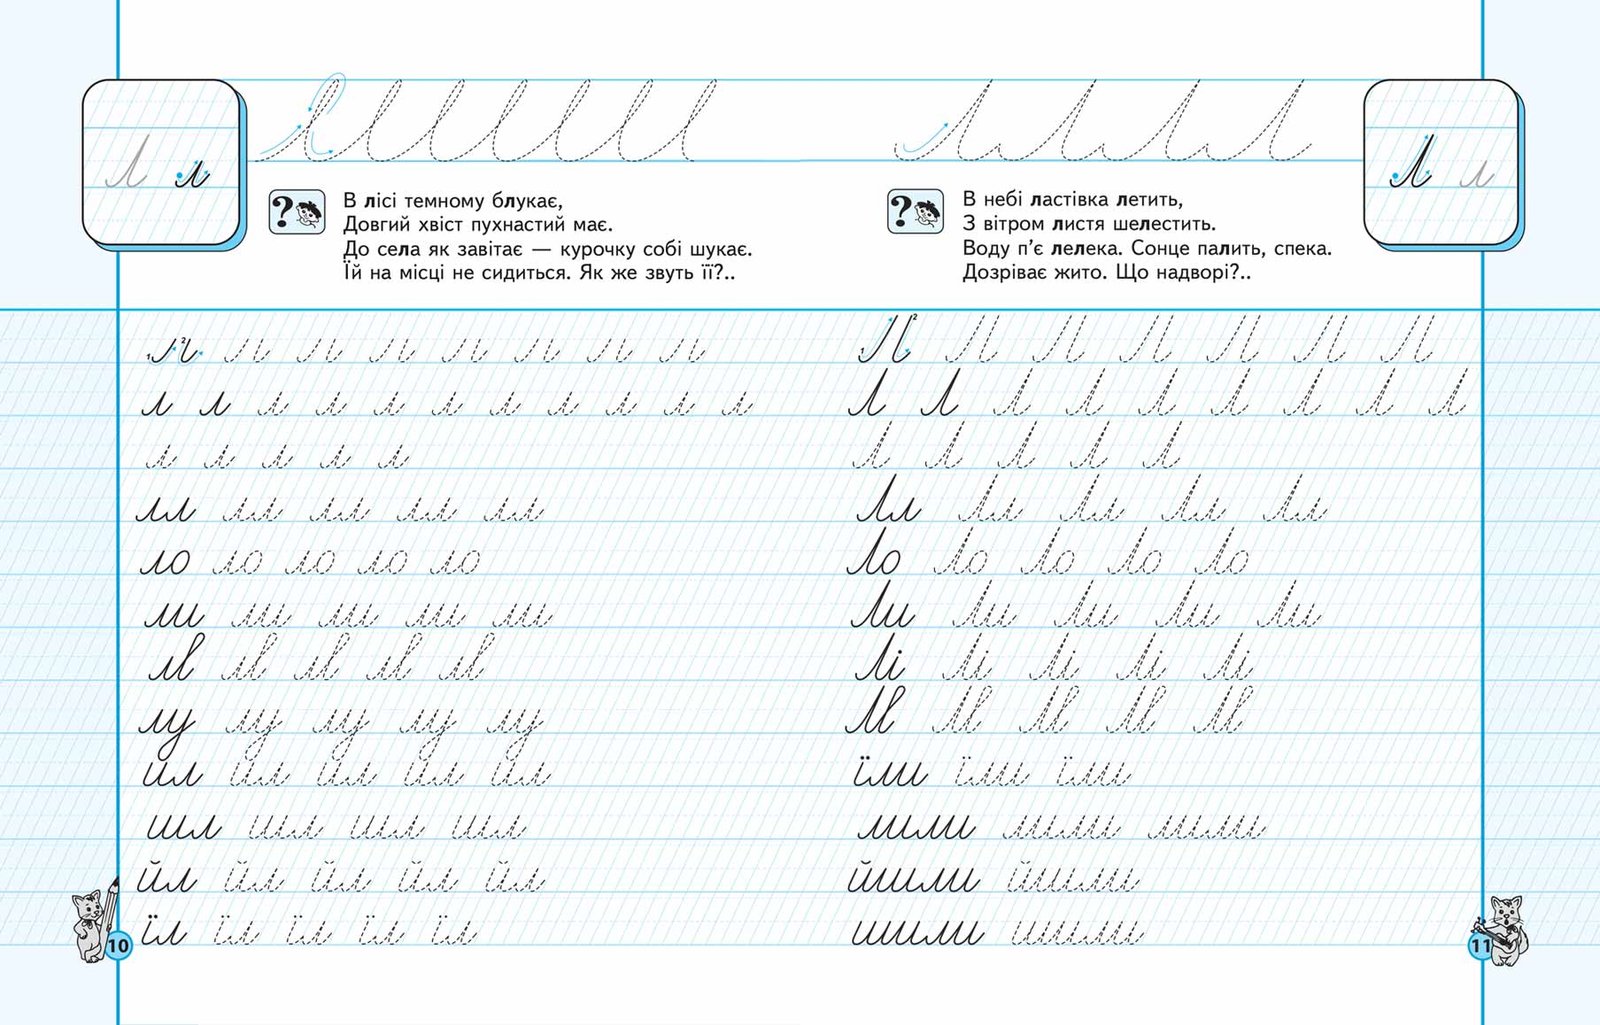 Л л
В лісі темному блукає,
Довгий хвіст пухнастий має.
До села як завітає — курочку собі шукає.
Їй на місці не сидиться. Як же звуть її?..
1 2
л л л л л л л л
л л л л л л л л л л л
л л л л л
лл лл лл лл лл
ло ло ло ло ло
ли ли ли ли ли
лв лв лв лв лв
лу лу лу лу лу
ил ил ил ил ил
шл шл шл шл
йл йл йл йл йл
їл їл їл їл їл
10
Л л
В небі ластівка летить,
З вітром листя шелестить.
Воду п’є лелека. Сонце палить, спека.
Дозріває жито. Що надворі?..
1 2
Л Л Л Л Л Л Л
Л Л Л Л Л Л Л Л Л
Л Л Л Л Л
Лл Лл Лл Лл Лл
Ло Ло Ло Ло Ло
Ли Ли Ли Ли Ли
Лі Лі Лі Лі Лі
Лв Лв Лв Лв Лв
їли їли їли
лили лили лили
йшли йшли
шили шили
11